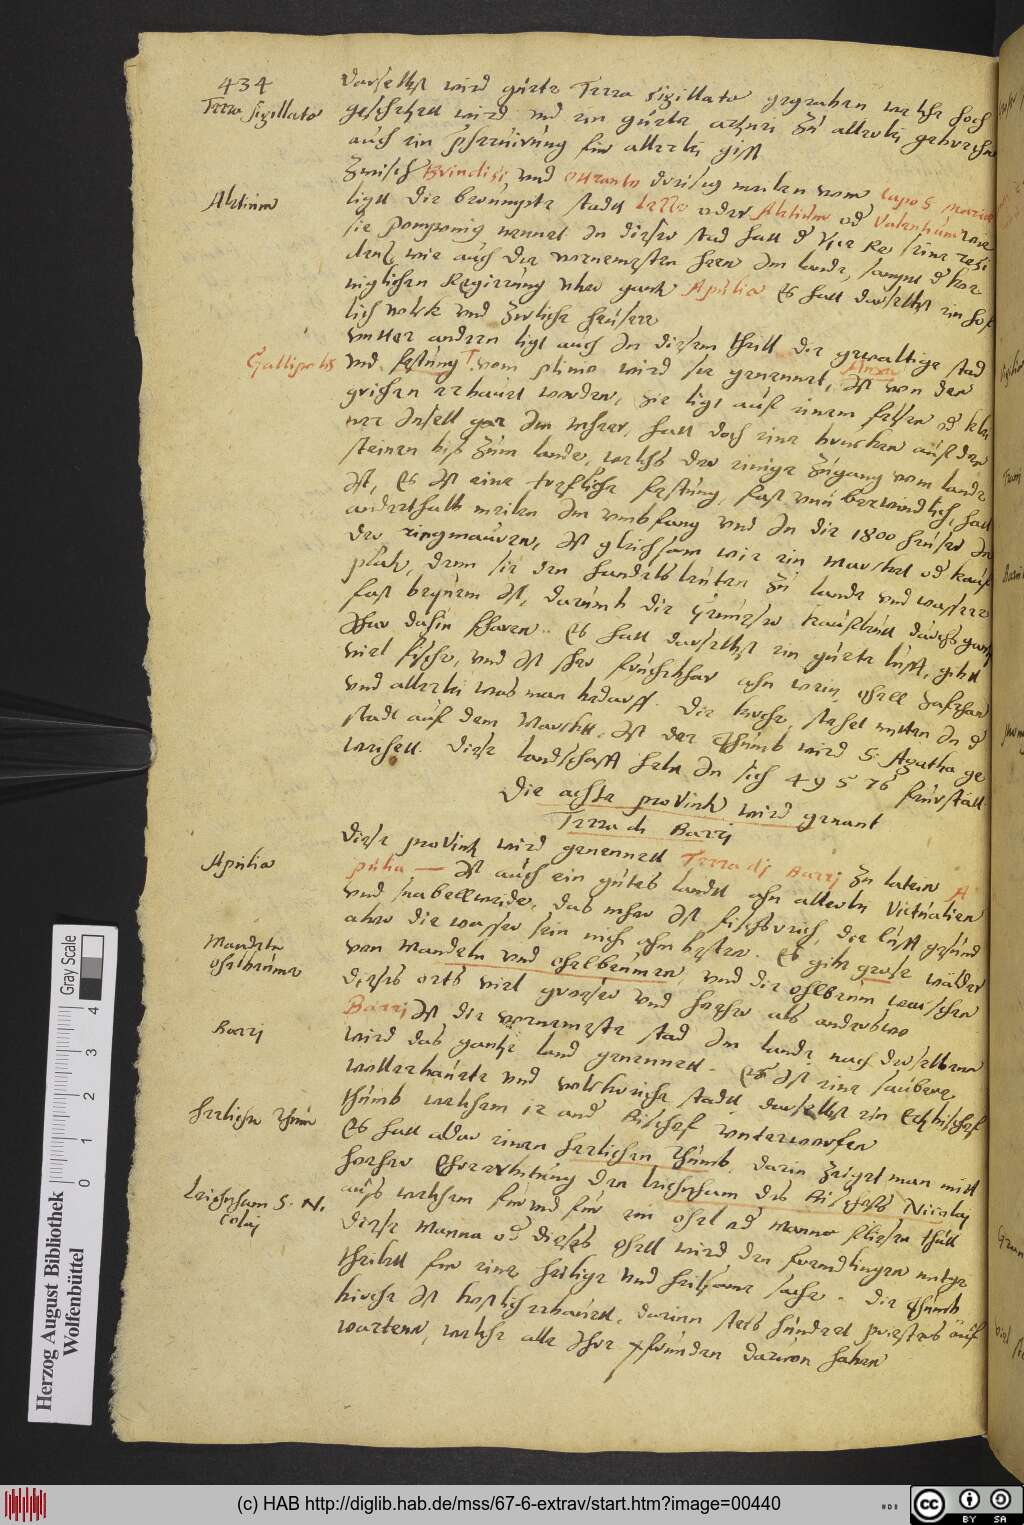 434
Terra sigillata
daselbst wird guete Terra sigillata gegraben welche hoch
geschetzet wird und ein guete artznei zu allerlei gebrechen
auch ein Preservirung für allerlei gift
Zwischen Brindisi und Ottranto dreisig meilen vom Capo S Mariae
Aletium
ligtt die berumpte stadtt Lezze oder Aletium od Valentium wie
sie Pomponius nennet In dieser stad hatt d Vice Re seine resi
dentz, wie auch die vornemesten herrn Im lande, sampt d kö
niglichen Regierung uber gantz Apulia Es hatt daselbst ein hof
lich volck und zirliche heuser
unter andern ligt auch In diesem theill die gewaltige stad
Gallipolis
und festung vom plinio wird sie genennet, Anxa Ist von den
grichen erbauet worden, sie ligt auf einem felsen od klei
ner Insell gar Im mehre, hatt doch eine brucken auf den
steinen bis zum lande, welchs der einige zugang vom lande
Ist, Es Ist eine trefliche festung, fast unüberwindlich, hatt
anderthalb meilen Im umbfang und In die 1800 heuser In
der ringmauren, Ist gleichsam wie ein marckt od kauf
platz, denn sie den handelsleuten zu lande und wasser
fast bequem Ist, darumb die fremder kaufleutt durchs gantz
Jhar dahin fharen. Es hatt daselbst ein guete luft, gibt
viel fische, und Ist sher fruchtbar ahn wein ohell saffran
und allerlei was man bedarff. Die kirche, stehet mitten In d
stadt auf dem Marckt, Ist der Thumb wird S. Agatha ge
weiset. Diese landschaft helt In sich 49576 feurstätt
Die achte provintz wird genant
Terra di Barri
Diese provintz wird genennett Terra dj Barrj Zu latein A
Apulia
pulia — Ist auch ein gutes landtt ahn allerlei Victualien
und snabellweide, das meher Ist fischreich, die luft gesund
aber die wasser sein nicht ahm besten. Es gibt grose wälder
Mandeln
ohelbeume
von Mandeln und ohelbeumen, und die ohlbeum wachsen
dieses orts viel groeser und hoeher als anderswo
Barrj
Barrj Ist die vornemste stad Im lande nach derselben
wird das gantze land genennett. Es Ist eine saubere,
wollerbauete und volckreiche stadtt, daselbst ein Ertzbischof
thumb welchem 12 and Bischof unterworfen
herlicher Thum
Es hatt aber einen herlichen Thumb, darin zeiget man mitt
hoeher Ehrerbitung den leichnham des Bischofs Nicolaj
Leichnham S. N.
Colaj
aus welchem für und für ein ohel od Manna fliesen thutt
Diese Manna od dieses ohell wird den fremdlingen mitge
theilett für eine heilige und heilsame sache. Die Thumb
kirche Ist kostlich erbauett, darinn stets hundert priesters auf
warten, welche alle Ihre Pfrunden darvon haben
Herzog August Bibliothek
Wolfenbüttel
Gray Scale
0 1 2 3 4
(c) HAB http://diglib.hab.de/mss/67-6-extrav/start.htm?image=00440
cc BY SA